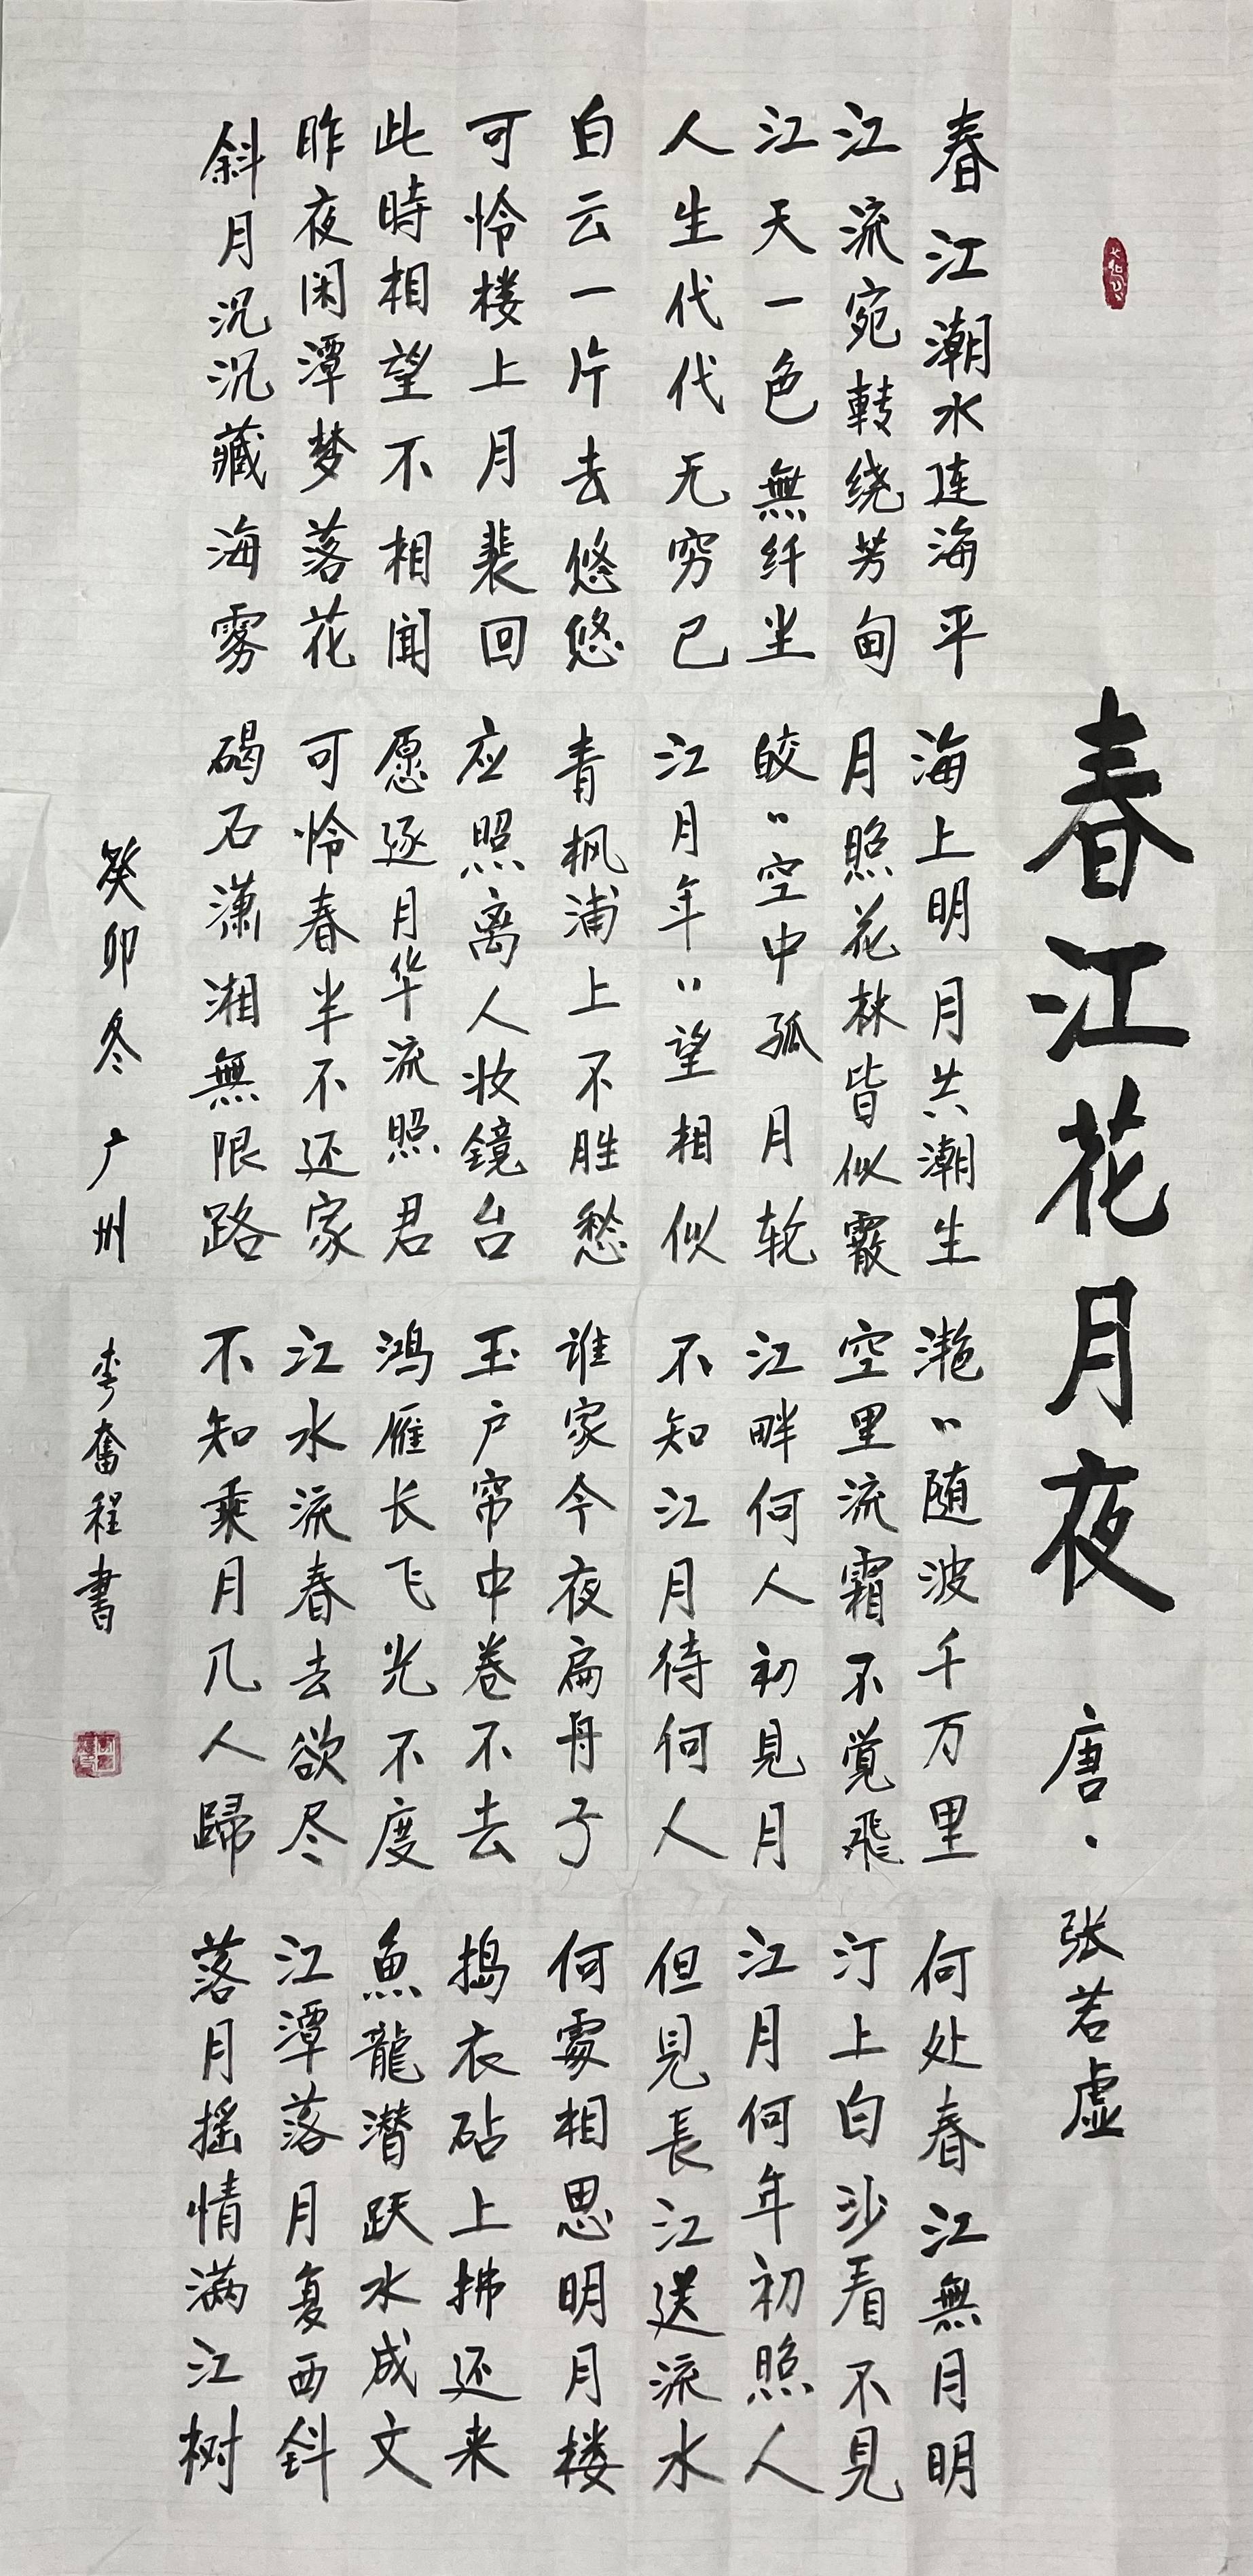 春江花月夜 唐·张若虚
春江潮水连海平 海上明月共潮生 滟〃随波千万里 何处春江無月明
江流宛转绕芳甸 月照花林皆似霰 空里流霜不觉飛 汀上白沙看不見
江天一色無纤尘 皎〃空中孤月轮 江畔何人初見月 江月何年初照人
人生代代无穷已 江月年〃望相似 不知江月待何人 但見長江送流水
白云一片去悠悠 青枫浦上不胜愁 谁家今夜扁舟子 何處相思明月楼
可怜楼上月裴回 应照离人妆鏡台 玉户帘中卷不去 捣衣砧上拂还来
此時相望不相聞 愿逐月华流照君 鸿雁长飞光不度 魚龍潜跃水成文
昨夜闲潭梦落花 可怜春半不还家 江水流春去欲尽 江潭落月复西斜
斜月沉沉藏海雾 碣石潇湘無限路 不知乘月几人歸 落月摇情满江树
癸卯冬 广州 李奮程書